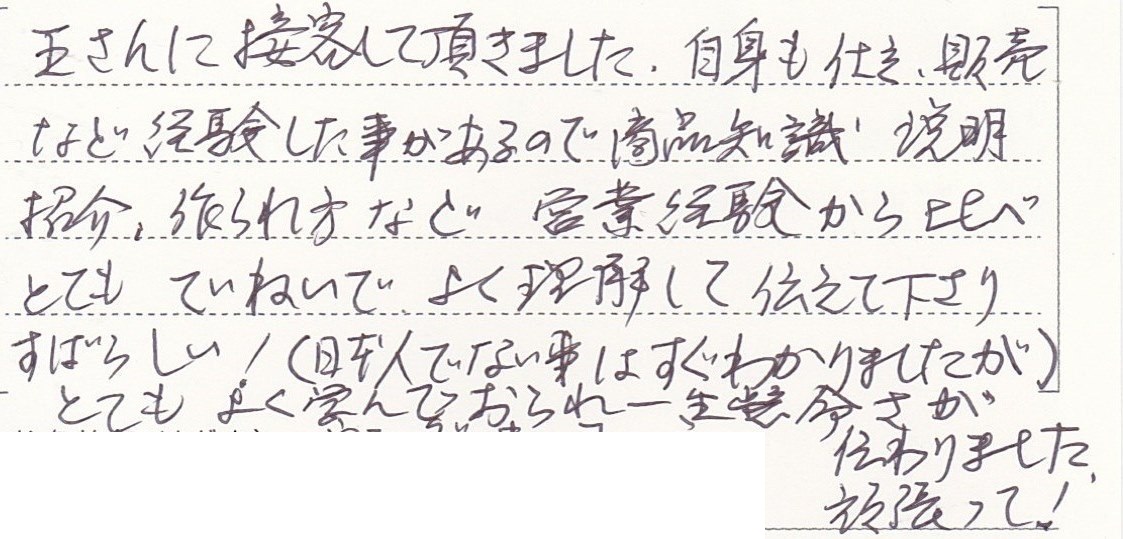 王さんに接客して頂きました。自身も仕立、販売
など経験した事があるので商品知識、説明
紹介、作られ方など 営業経験から比べ
とても ていねいで よく理解して伝えて下さり
すばらしい!(日本人でない事はすぐわかりましたが)
とても よく学んでおられ一生懸命さが
伝わりました、
頑張って!